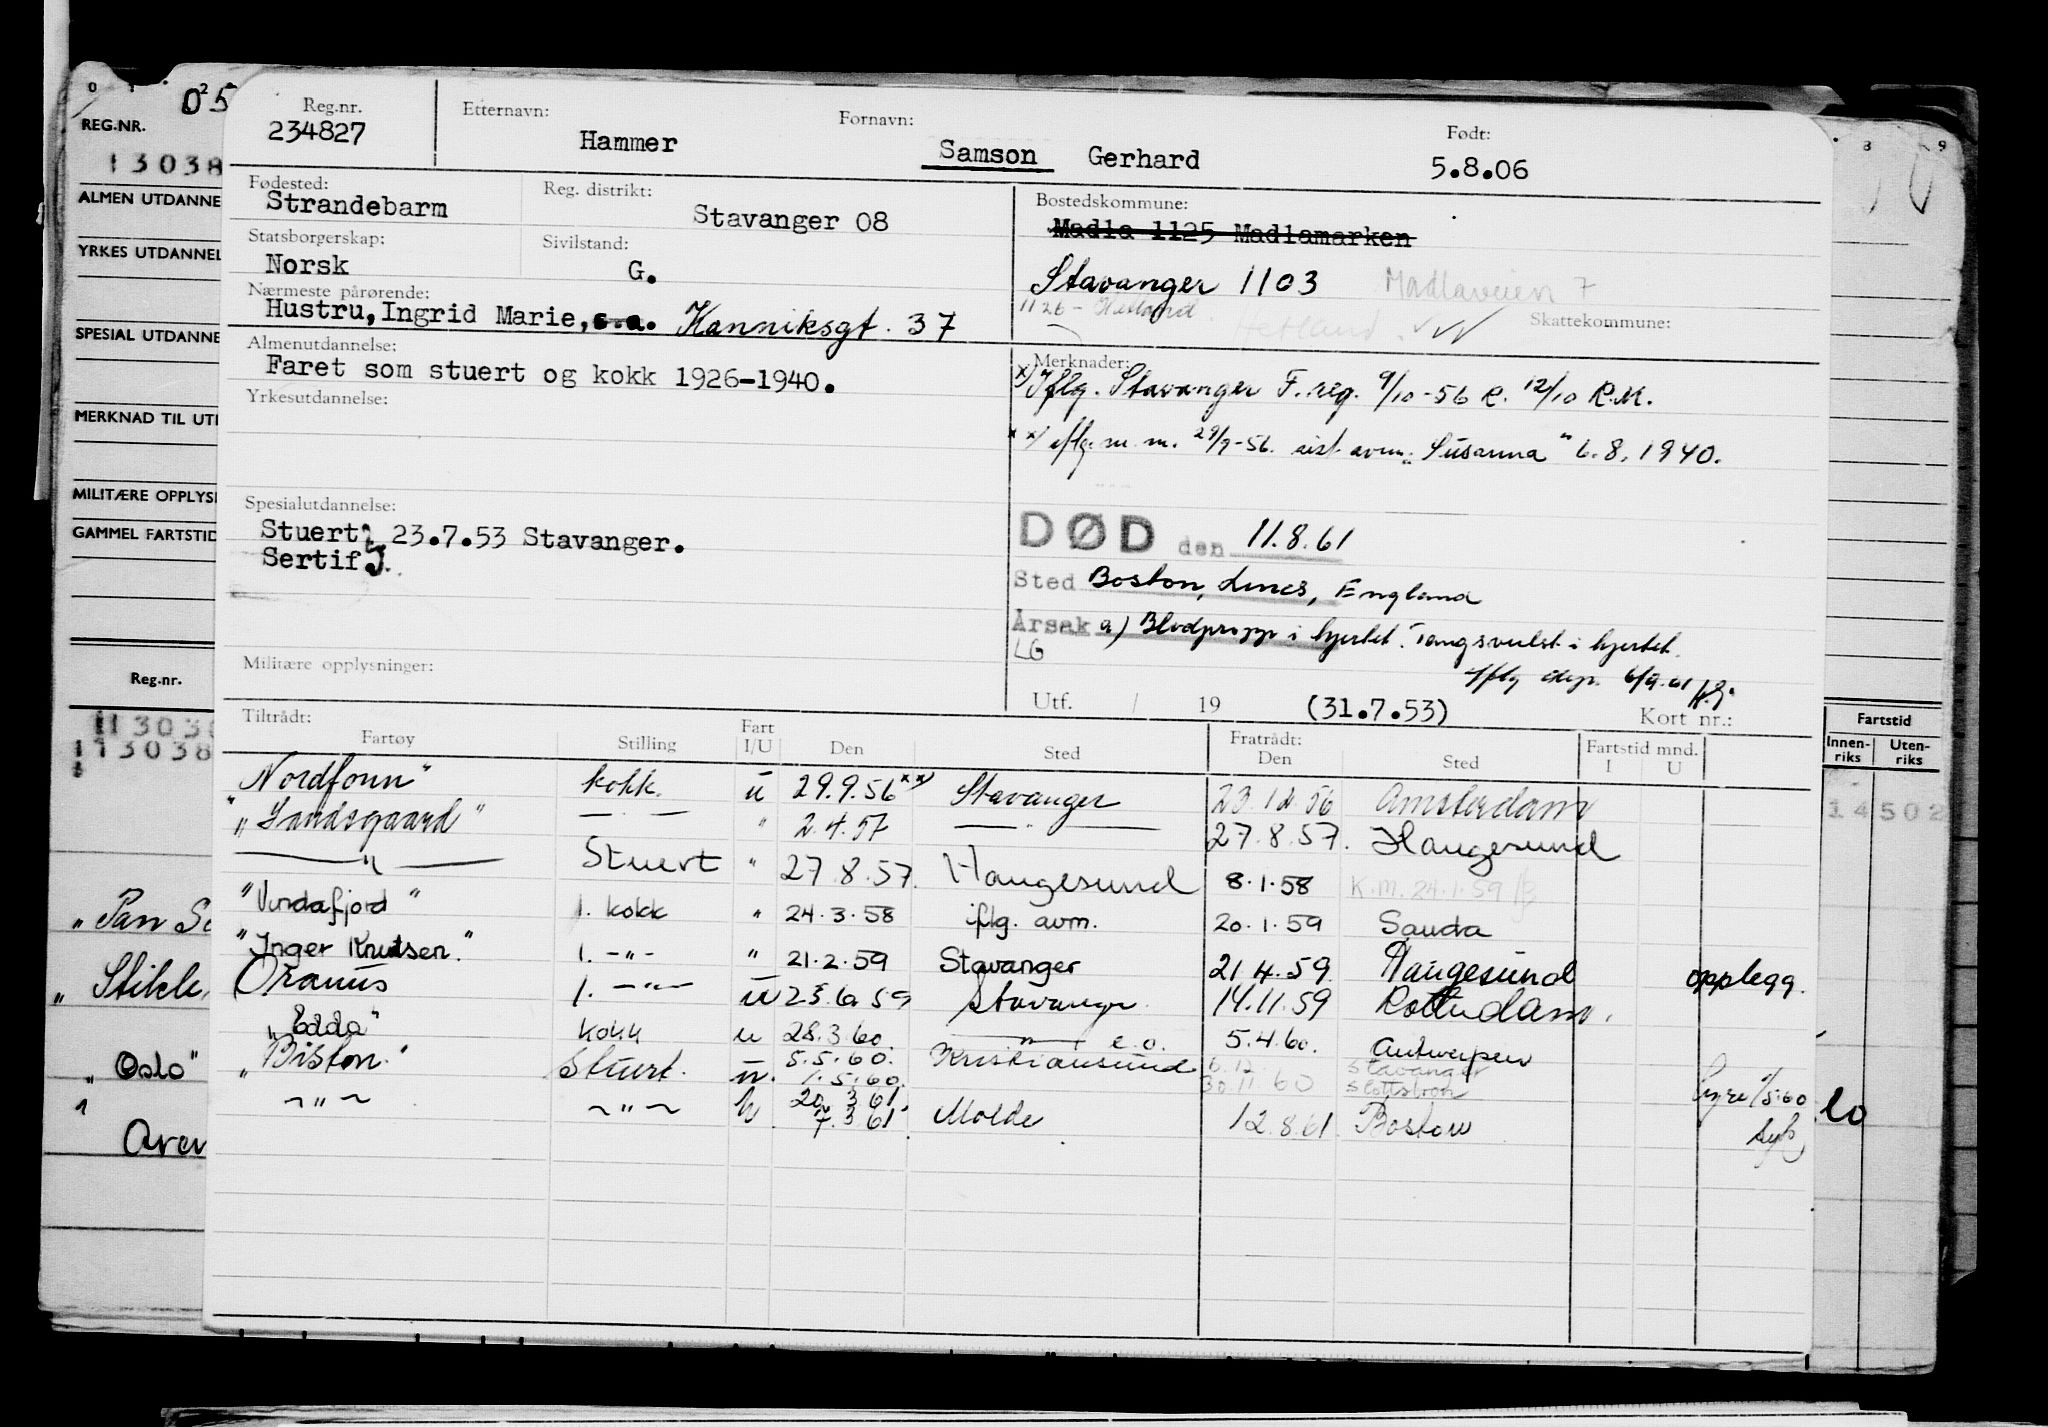 025
REG.NR.
13038
ALMEN UTDANNE
YRKES UTDANNEL
SPESIAL UTDANNE
MERKNAD TIL UT
MILITÆRE OPPLYS
GAMMEL FARTSTID
Reg.nr.
13038
„ Pan
„ Stikle
„ Oslo"
Reg.nr. 234827
Etternavn: Hammer
Fornavn: Samson Gerhard
Født: 5.8.06
Fødested: Strandebarm
Reg. distrikt: Stavanger 08
Bostedskommune:
Madla 1125 Madlamarken
Stavanger 1103 Madlaveien 7
1126 - Hetland
Hetland
Skattekommune:
Statsborgerskap: Norsk
Sivilstand: G.
Nærmeste pårørende:
Hustru, Ingrid Marie, s.a. Kanniksgt. 37
Almenutdannelse:
Faret som stuert og kokk 1926-1940.
Yrkesutdannelse:
Spesialutdannelse:
Stuert 23.7.53 Stavanger.
Sertif.
Militære opplysninger:
Merknader:
x) Iflg. Stavanger F.reg. 9/10-56 R. 12/10 R.M.
xx) iflg. m.m. 29/9-56. sist avm. „Susanna" 6.8.1940.
DØD den 11.8.61
Sted Boston, Lincs, England
Årsak a) Blodpropp i hjertet.
LG
Utf. / 19 (31.7.53) Kort nr.:
Tiltrådt: Fratrådt:
Fartøy Stilling Fart I/U Den Sted Den Sted Fartstid mnd. I U
"Nordfonn" kokk. u 29.9.56 xx) Stavanger 23.12.56 Amsterdam
"Sandsgaard" — . — " 2.4.57 — " — 27.8.57. Haugesund
— " — Stuert " 27.8.57. Haugesund 8.1.58 K.m. 24.1.59
"Vindafjord" 1. kokk " 24.3.58 iflg. avm. 20.1.59 Sauda
"Inger Knudsen." 1. -"- " 21.2.59 Stavanger 21.4.59. Haugesund opplegg.
Oranus 1. -"- u 23.6.59 Stavanger 14.11.59 Rotterdam.
"Edda" kokk u 28.3.60. — " — e.o. 5.4.60. Antwerpen
„Biston." Stuert. u. 5.5.60. Kristiansund 6.12. Stavanger
1.5.60. 30.11.60
~ " ~ ~ " ~ u 20.3.61. Molde 12.8.61 Boston syk
7.3.61.
8 9
Fartstid
Innen-riks Uten-riks
14502